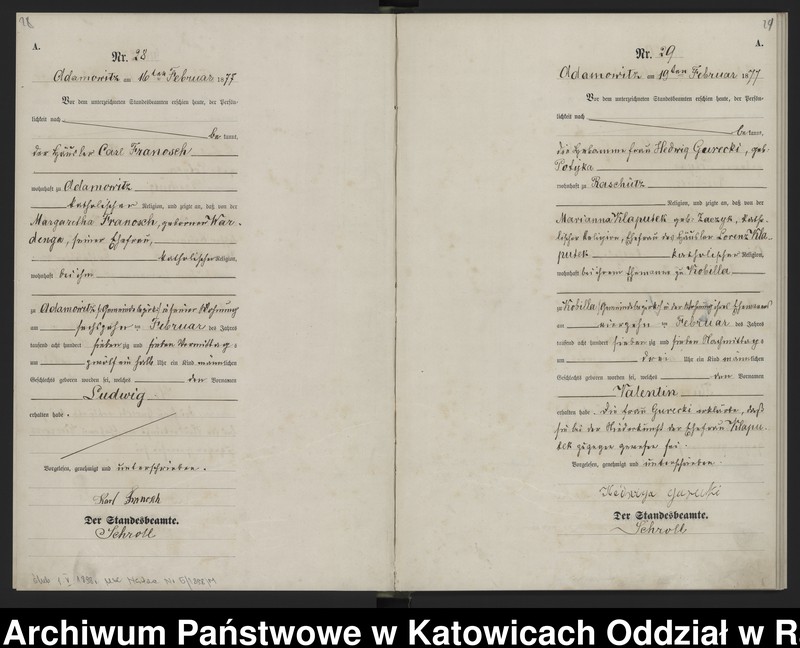 28
A.
Nr. 28
Adamowitz am 16ten Februar 1877
Vor dem unterzeichneten Standesbeamten erschien heute, der Persön-
lichkeit nach
be kannt,
der Häusler Carl Franosch
wohnhaft zu Adamowitz
katholischer Religion, und zeigte an, daß von der
Margaretha Franosch, geborner War-
denga, seiner Ehefrau,
katholischer Religion,
wohnhaft bei ihm
zu Adamowitz (Gemeindebezirk) in seiner Wohnung
am sechszehn ten Februar des Jahres
tausend acht hundert sieben zig und sieben Vormittags
um halb ein Uhr ein Kind männlichen
Geschlechts geboren worden sei, welches den Vornamen
Ludwig
erhalten habe.
Vorgelesen, genehmigt und unterschrieben.
Karl Franosch
Der Standesbeamte.
Schroll
29
A.
Nr. 29
Adamowitz am 19ten Februar 1877
Vor dem unterzeichneten Standesbeamten erschien heute, der Persön-
lichkeit nach
be kannt,
die Hebamme Frau Hedwig Gurecki, geb.
Potyka
wohnhaft zu Raschütz
Religion, und zeigte an, daß von der
Marianna Klaputek geb. Zaczyk, katho-
lischer Religion, Ehefrau des Häusler Lorenz Kla-
putek katholischer Religion,
wohnhaft bei ihrem Ehemanne zu Kobilla
zu Kobilla (Gemeindebezirk) in der Wohnung ihres Ehemanns
am vierzehn ten Februar des Jahres
tausend acht hundert sieben zig und sieben Nachmittags
um drei Uhr ein Kind männlichen
Geschlechts geboren worden sei, welches den Vornamen
Valentin
erhalten habe. Die Frau Gurecki erklärte, daß
sie bei der Niederkunft der Ehefrau Klapu-
tek zugegen gewesen sei.
Vorgelesen, genehmigt und unterschrieben
Hedwiga Gurecki
Der Standesbeamte.
Schroll
Archiwum Państwowe w Katowicach Oddział w R